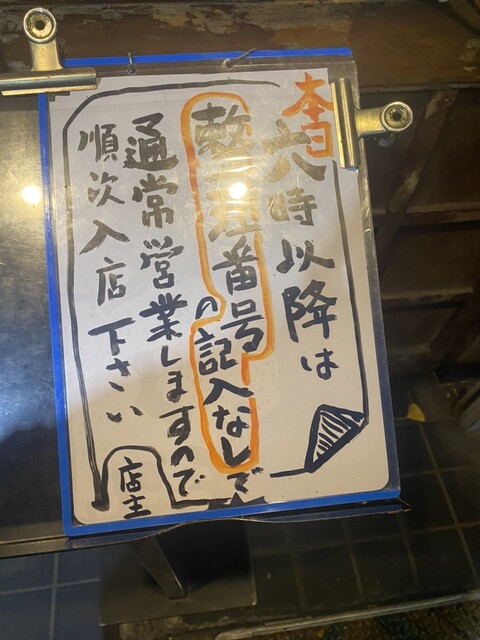 本日
六時以降は
整理番号の記入なしで
通常営業しますので
順次入店下さい
店主